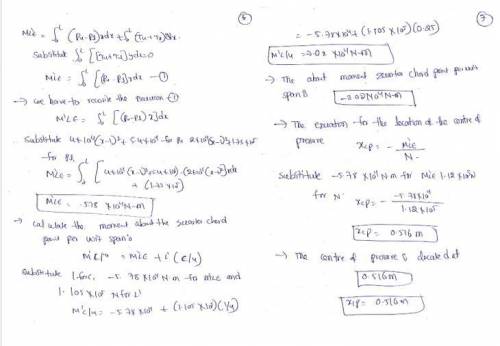 6
M'LE = ∫₀ᴸ (Pu-Pl)xdx + ∫₀ᴸ (τu+τl)ydx.
Substitute ∫₀ᴸ [τu+τl]ydx=0
M'LE = ∫₀ᴸ [(Pu-Pl)xdx —①
→ we have to rewrite the equation ①
M'LE = ∫₀ᴸ [(Pu-Pl)x]dx
Substitute 4×10⁴(x-1)²+5.4×10⁴ for Pu 2×10⁴(x-1)²+1.73×10⁵
for Pl
M'LE = ∫₀ᴸ [4×10⁴(x-1)²+5.4×10⁴)-(2×10⁴(x-1)²
+(1.73×10⁵)
M'LE = -5.78×10⁴ N-m
→ calculate the moment about the quarter chord
point per unit span
M'c/4 = M'LE + L'(c/4)
Substitute -5.78×10⁴ N·m for M'LE and
1.105×10⁵ N for L'
M'c/4 = -5.78×10⁴ + (1.105×10⁵)(1/4)
7
= -5.78×10⁴+(1.105×10⁵)(0.25)
M'c/4 = -3.02×10⁴N-m
→ The about moment quarter chord point per unit
span is
-3.02×10⁴N-m
→ The equation for the location of the centre of
pressure
xcp = - M'LE / N'
Substitute -5.78×10⁴ N-m for M'LE 1.12×10⁵N
for N' xcp = - -5.78×10⁴ / 1.12×10⁵
xcp = 0.516m
→ The centre of pressure is located at
0.516m
xcp = 0.516m